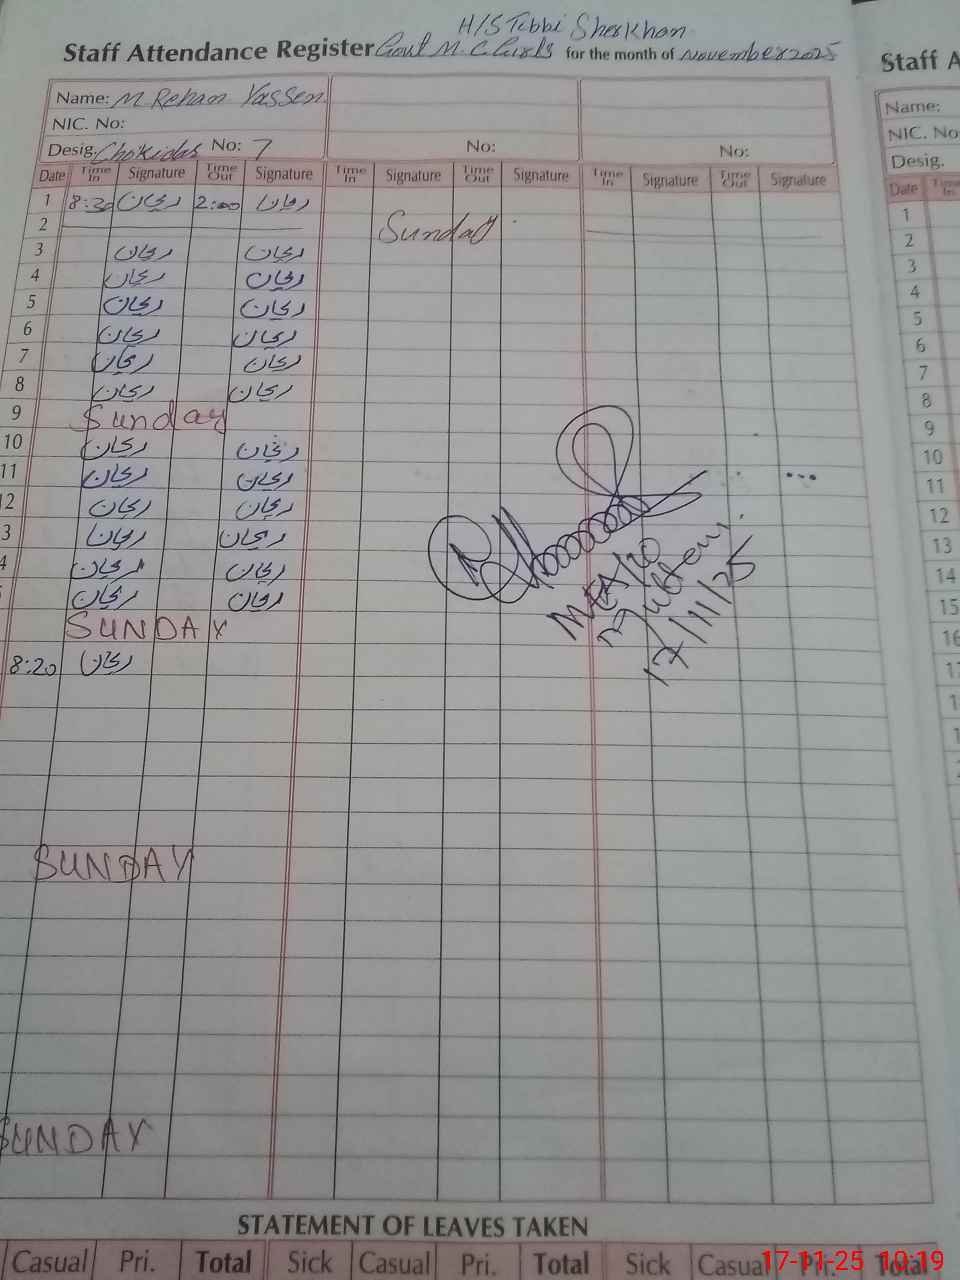 H/S Tibbi Sherkhan
Staff Attendance Register Govt M. C. Girls for the month of November 2025
Name: M Rehan Yasseen
NIC. No:
Desig. Chokidar No: 7 No: No:
Date Time In Signature Time Out Signature Time In Signature Time Out Signature Time In Signature Time Out Signature
1 8:30 ریحان 2:00 ریحان
2 Sunday
3 ریحان ریحان
4 ریحان ریحان
5 ریحان ریحان
6 ریحان ریحان
7 ریحان ریحان
8 ریحان ریحان
9 Sunday
10 ریحان ریحان
11 ریحان ریحان
12 ریحان ریحان
3 ریحان ریحان
4 ریحان ریحان
ریحان ریحان
SUNDAY
8:20 ریحان
17/11/25
SUNDAY
SUNDAY
STATEMENT OF LEAVES TAKEN
Casual Pri. Total Sick Casual Pri. Total Sick Casual Pri. Total
17-11-25 10:19
Staff A
Name:
NIC. No
Desig.
Date Time In
1
2
3
4
5
6
7
8
9
10
11
12
13
14
15
16